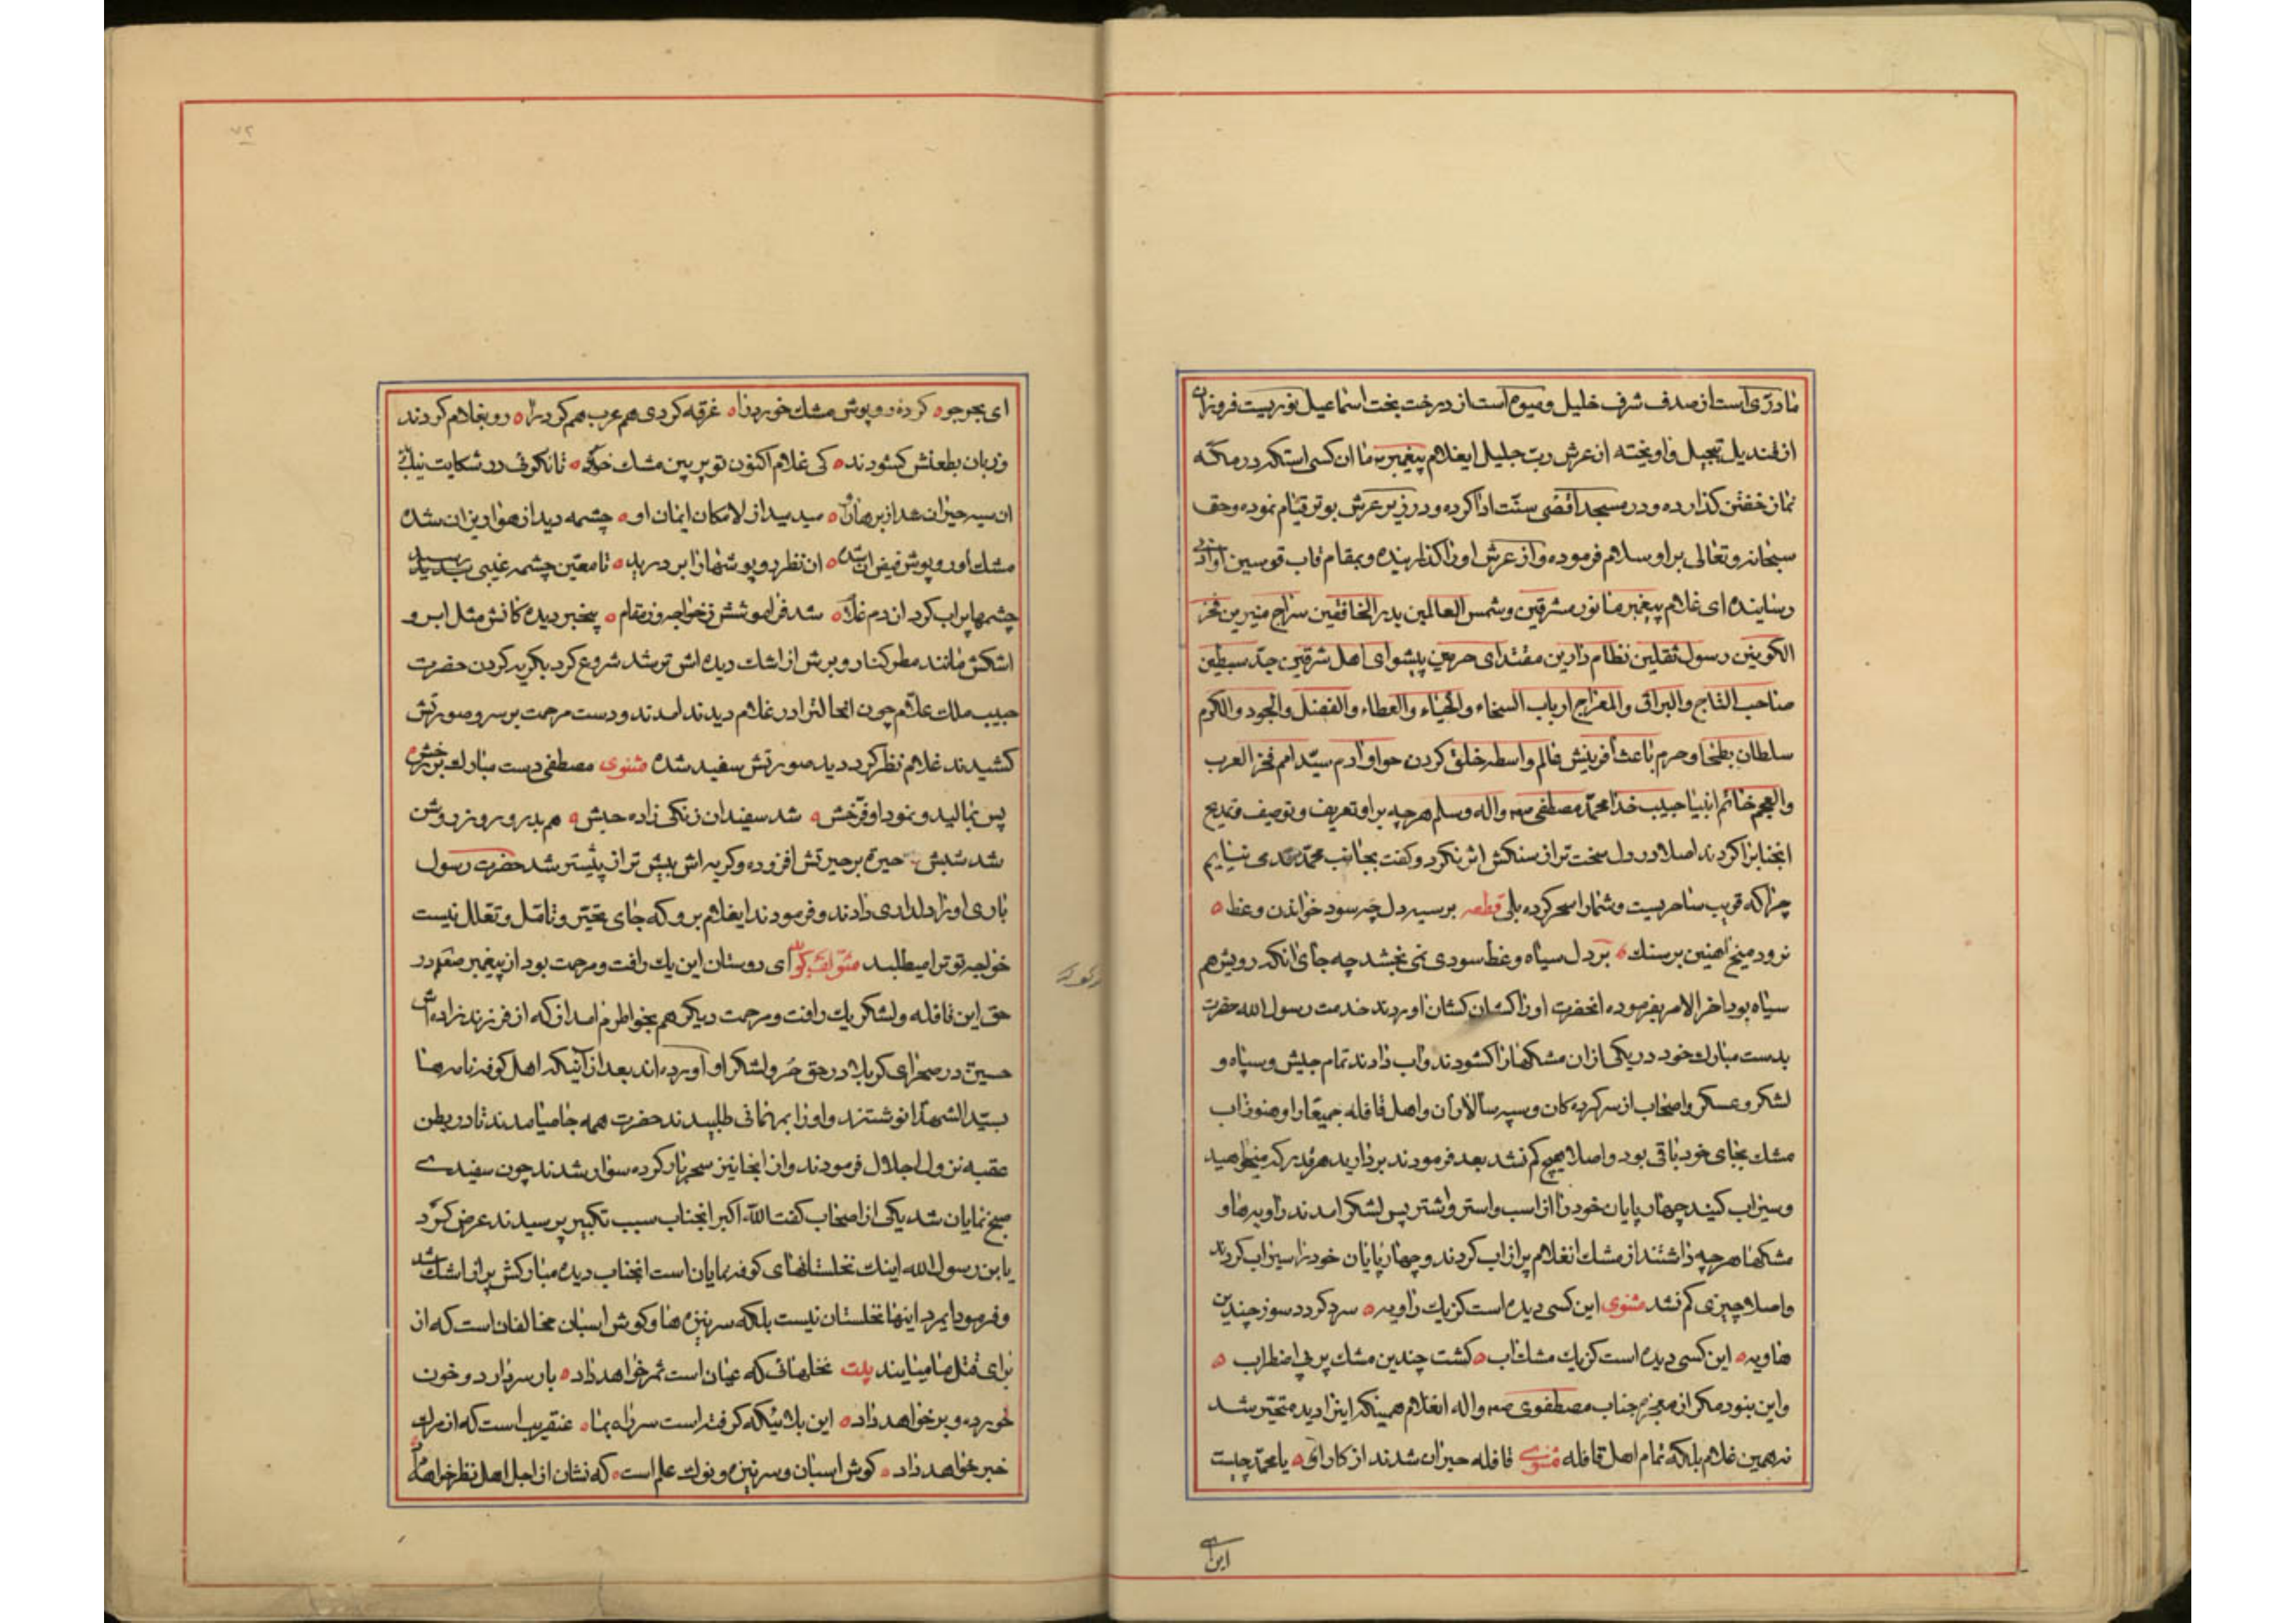 ما درّی است از صدف شرف خلیل و میوه است از درخت بخت اسماعیل نوریست فروزان
از قندیل تبجیل و اویخته از عرش رب جلیل ایغلام پیغمبر ما ان کسی است که در مکه
نماز خفتن کذارده و در مسجد اقصی سنّت ادا کرده و در زیر عرش بوتر قیام نموده و حق
سبحانه و تعالی بر او سلام فرموده و از عرش او را کذرانیده و بمقام قاب قوسین او ادنی
رسانیده ای غلام پیغمبر ما نور مشرقین و شمس العالمین بدر الخافقین سراج منیرین فخر
الکونین رسول ثقلین نظام دارین مقتدای حرمین پیشوای اهل شرقین جدّ سبطین
صاحب التاج والبراق والمعراج ارباب السخاء والحیاء والعطاء والفضل والجود والکرم
سلطان بطحا و حرم باعث افرینش عالم واسطه خلق کردن حوا و ادم سیّد امم فخر العرب
والعجم خاتم انبیا حبیب خدا محمّد مصطفی ص واله وسلم هرچه بر او تعریف و توصیف و مدیح
انجناب را کردند اصلا در دل سخت تر از سنکش اثر نکرد و کفت بجانب محمّد نمی ایم
چرا که قریب ساحریست و شما را سحر کرده بلی قطعه بر سیه دل چه سود خواندن وعظ
نرود میخ اهنین بر سنک بر دل سیاه وعظ سودی نمی بخشد چه جای انکه رویش هم
سیاه بود اخر الامر بفرموده انحضرت او را کشان کشان اوردند خدمت رسول الله حضرت
بدست مبارک خود در یکی از ان مشکها را کشودند و اب دادند تمام جیش و سپاه و
لشکر و عسکر و اصحاب از سرکرده کان و سپه سالاران و اهل قافله جمیعا را و هنوز اب
مشک بجای خود باقی بود و اصلا هیچ کم نشد بعد فرمودند بردارید هر قدر که میخواهید
و سیراب کنید چهار پایان خود را از اسب و استر و اشتر پس لشکر امدند راویه ها و
مشکها هر چه داشتند از مشک انغلام پر از اب کردند و چهار پایان خود را سیراب کردند
و اصلا چیزی کم نشد مثنوی این کسی دیده است کز یک راویه سرد کردد سوز چندین
هاویه این کسی دیده است کز یک مشک اب کشت چندین مشک پر بی اضطراب
و این بنود مکر از معجزه جناب مصطفوی ص واله انغلام همینکه اینرا دید متحیّر شد
نه همین غلام بلکه تمام اهل قافله مثنوی قافله حیران شدند از کار اوی یا محمّد چیست
این ای
ای بحر جو کرده روپوش مشک خورد را غرقه کردی هم عرب هم کرد را رو بغلام کردند
و زبان بطعنش کشودند کی غلام اکنون تو پر بین مشک خود تا نکوئی در شکایت نیک
ان سیه حیران شد از برهان او میدمید از لامکان ایمان او چشمه دید از هوا ریزان شده
مشک او روپوش فیض ان شده ان نظر روپوشها را بر درید تا معیّن چشمه غیبی رسید
چشمها پر اب کرد ان دم غلام شد فراموشش ز خواجه وز مقام بیخبر دیده کانش مثل ابر و
اشکش مانند مطر کنار و برش از اشک دیده اش تر شد شروع کرد بکریه کردن حضرت
حبیب ملک علام چون انحالت را در غلام دیدند امدند و دست مرحمت بر سر و صورتش
کشیدند غلام نظر کرد دید صورتش سفید شده مثنوی مصطفی دست مبارک بر رخش
پس بمالید و نمود او فرخش شد سفید ان زنکی زاده حبش هم بدر و روز روشن
شد شبش حیرة بر حیرتش افزوده و کریه اش بیش تر از پیشتر شد حضرت رسول
باری او را دلداری دادند و فرمودند ایغلام برو که جای تحیّر و تامّل و تعلل نیست
خواجه تو ترا میطلبد ای دوستان این یک رافت و مرحمت بود از پیغمبر در
حق این قافله و لشکر یک رافت و مرحمت دیکر هم بخواطرم امد از که از فرزند زاده اش
حسین در صحرای کربلا در حق حر و لشکر او آورده اند بعد از آنیکه اهل کوفه نامه ها
بسیّد الشهدا نوشتند و او را بمهمانی طلبیدند حضرت همه جا میامدند تا در بطن
عقبه نزول اجلال فرمودند و از انجا نیز سحر بار کرده سوار شدند چون سفیدی
صبح نمایان شد یکی از اصحاب کفت الله اکبر انجناب سبب تکبیر پرسیدند عرض کرد
یا بن رسول الله اینک نخلستانهای کوفه نمایان است انجناب دیده مبارکش پر از اشک شد
و فرمود ایمرد اینها نخلستان نیست بلکه سر نیزه ها و کوش اسبان مخالفان است که از
برای قتل ما میایند بیت نخلهائی که عیان است ثمر خواهد داد بار سر دارد و خون
خورده و بر خواهد داد این بلائیکه کرفته است سر راه بما عنقریب است که از مرك
خبر خواهد داد کوش اسبان و سر نیزه و نوک علم است که نشان از اجل اهل نظر خواهد